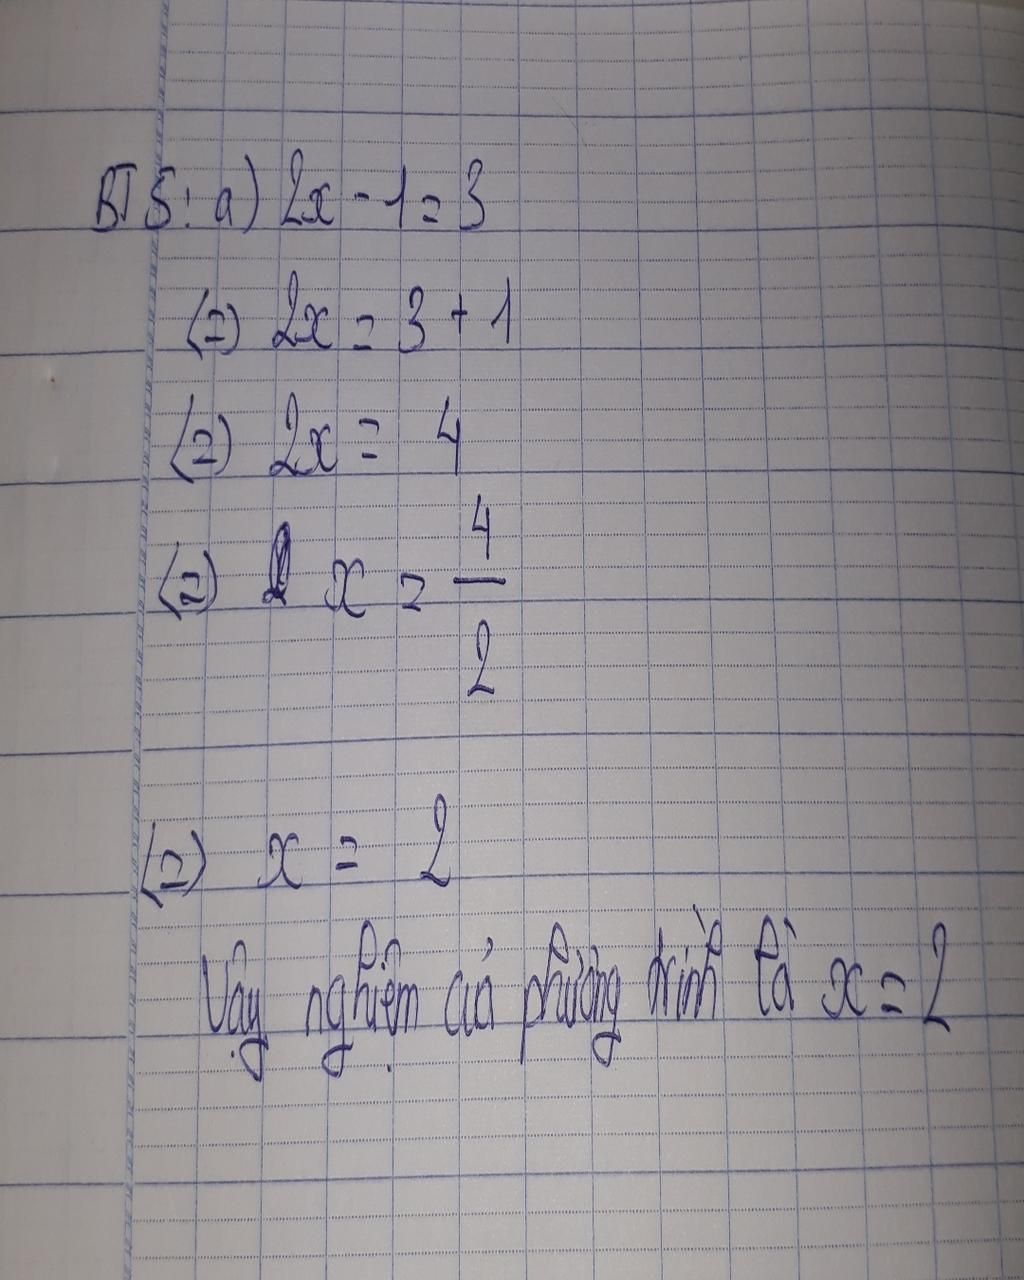 BT 5: a) 2x - 1 = 3
(=) 2x = 3 + 1
(=) 2x = 4
(=) x = 4/2
(=) x = 2
Vậy nghiệm của phương trình là x = 2